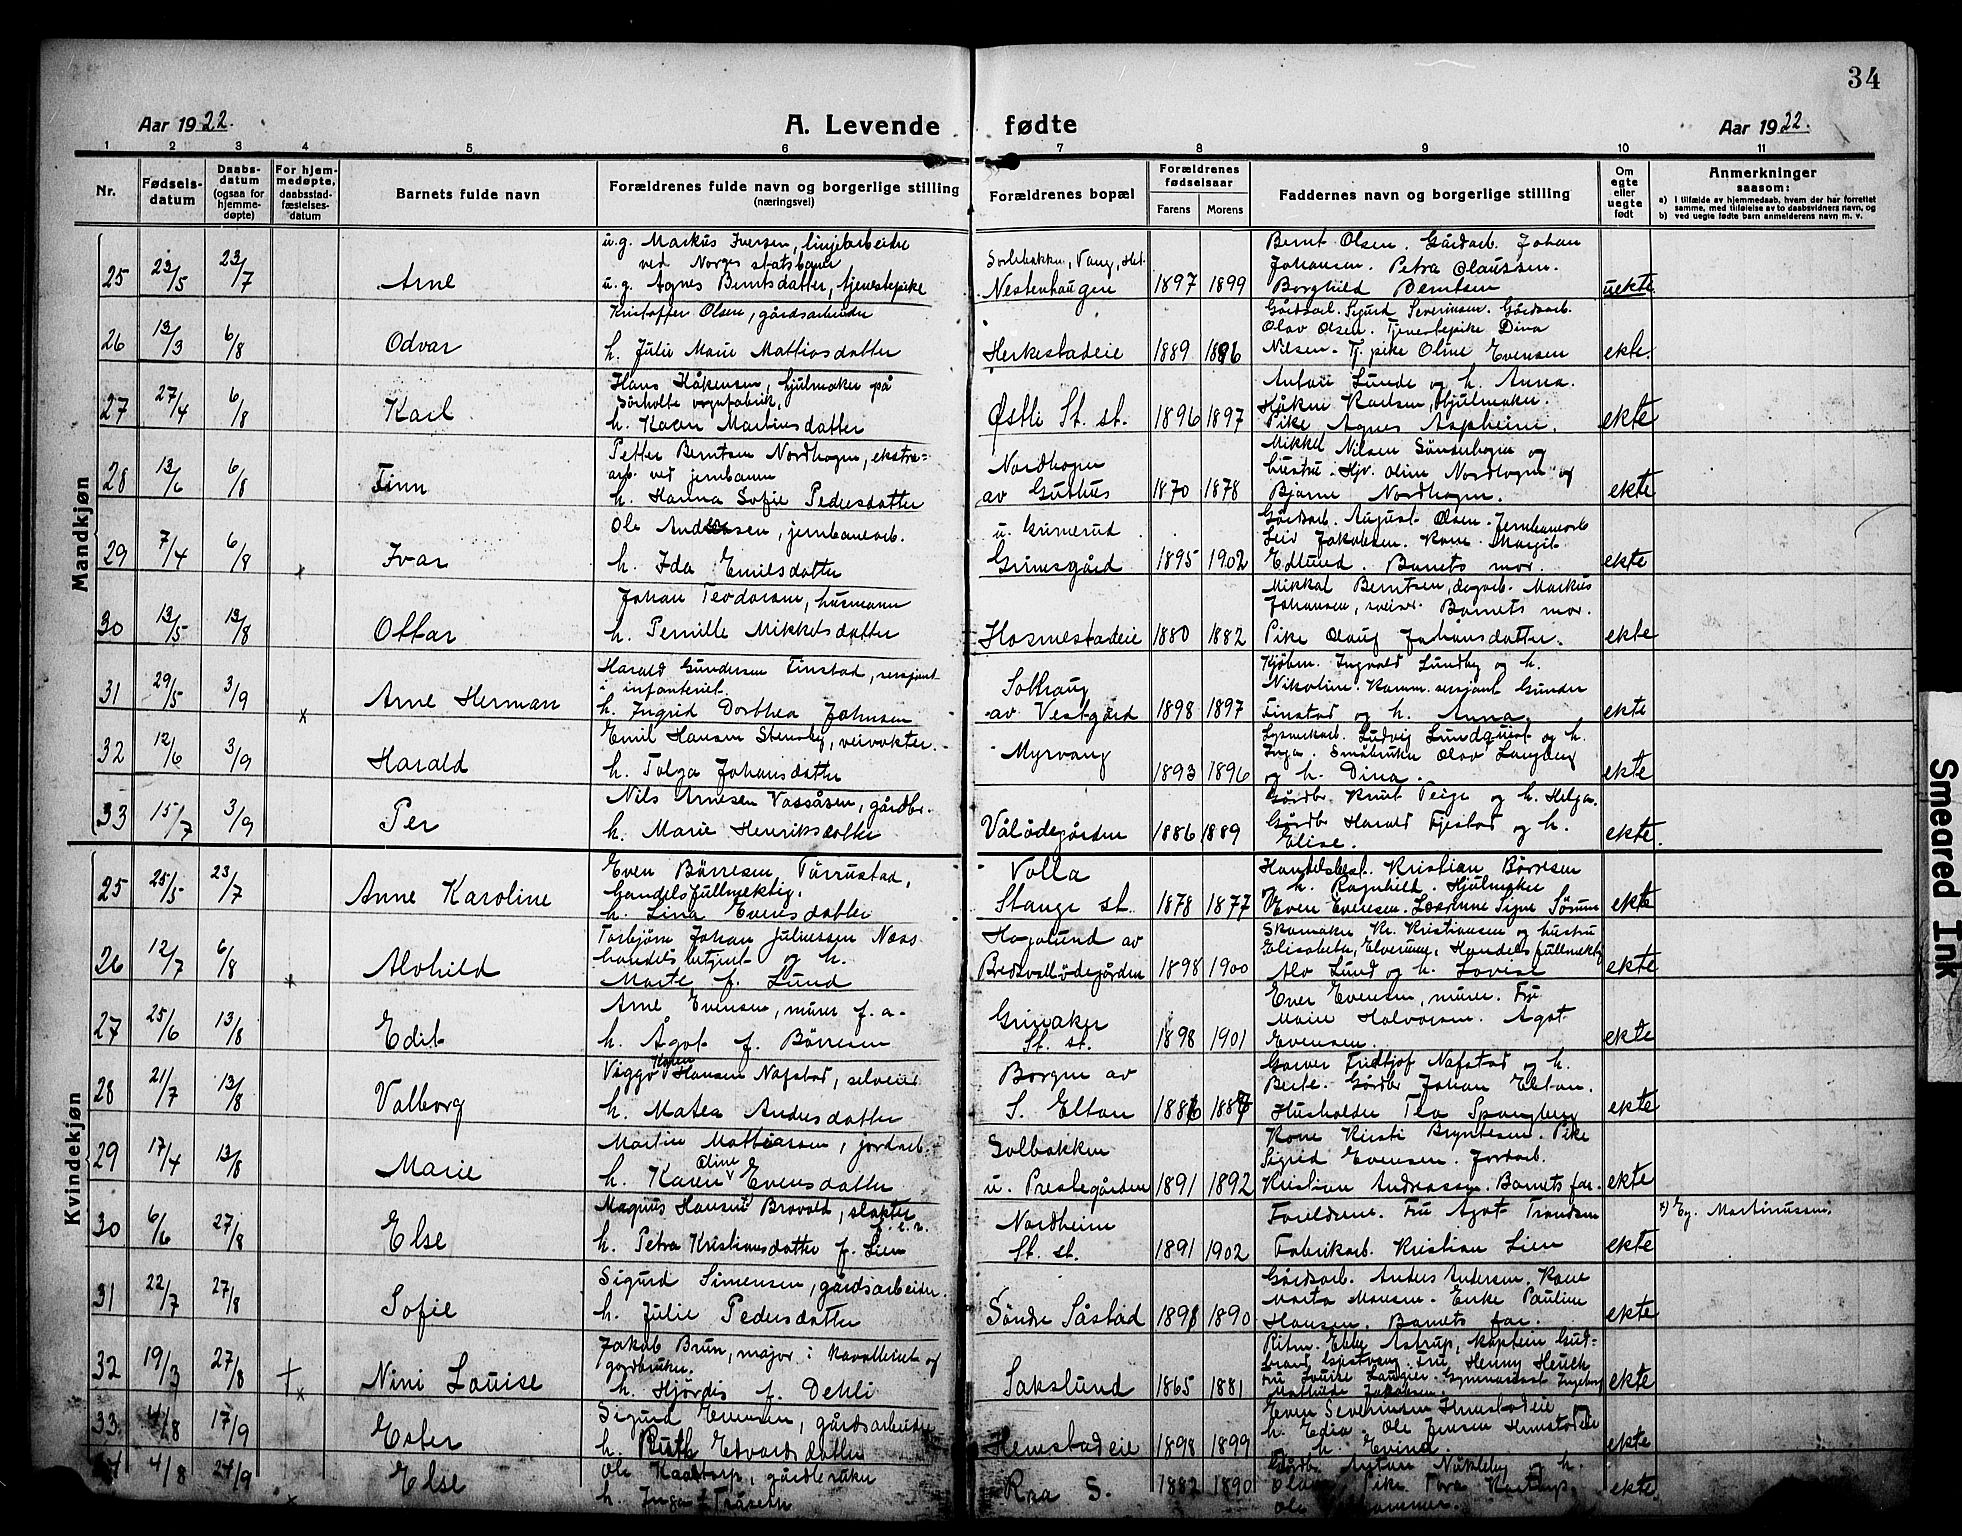 34
Aar 1922.
A. Levende fødte
Aar 1922.
1 2 3 4 5 6 7 8 9 10 11
Nr.
Fødsels-
datum
Daabs-
datum
(ogsaa for
hjemme-
døpte)
For hjem-
medøpte,
daabsstad-
fæstelses-
datum
Barnets fulde navn
Forældrenes fulde navn og borgerlige stilling
(næringsvei)
Forældrenes bopæl
Forældrenes
fødselsaar
Farens Morens
Faddernes navn og borgerlige stilling
Om
egte
eller
uegte
født
Anmerkninger
saasom:
a) i tilfælde av hjemmedaab, hvem der har forrettet
samme, med tilføielse av to daabsvidners navn, og
b) ved uegte fødte barn anmelderens navn m. v.
Mandkjøn
25 23/5 23/7 Arne
u.g. Markus Iversen, linjearbeider
ved Norges statsbaner
u.g. Agnes Berntsdatter, tjenestepike
Solbakken, Vang, Hed.
Nestenhaugen 1897 1899
Bernt Olsen. Gårdarb. Johan
Johansen. Petra Olaussen.
Borghild Berntsen
uekte
26 13/3 6/8 Odvar
Kristoffer Olsen, gårdsarbeider
h. Julie Marie Mattiasdatter
Herkestadeie 1889 1896
Gårdsarb. Sigurd Severinsen. Gårdsarb.
Olav Olsen. Tjenestepike Dina
Nilsen. Tj.pike Oline Evensen
ekte.
27 27/4 6/8 Karl
Hans Håkensen, hjulmaker på
Sørholte vognfabrik,
h. Karen Martinsdatter
Østli St. st. 1896 1897
Anton Lunde og h. Anna.
Håken Karlsen, Hjulmaker.
Pike Agnes Aspheim.
ekte
28 13/6 6/8 Finn
Petter Berntsen Nordhagen, ekstra-
arb. ved jernbanen
h. Hanna Sofie Pedersdatter
Nordhagen
av Guthus 1870 1878
Mikkel Nilsen Sønderhagen og
hustru. Hjv. Oline Nordhagen og
Bjarne Nordhagen.
ekte
29 7/4 6/8 x Ivar
Ole Andersen, jernbanearb.
h. Ida Emilsdatter
u. Grimerud
Grimsgård 1895 1902
Gårdsarb. August Olsen. Jernbanearb.
Leiv Jakobsen. Kone Margit
Edlund. Barnets mor.
ekte
30 13/5 13/8 Ottar
Johan Teodorsen, husmann
h. Pernille Mikkelsdatter
Hosmestadeie 1880 1882
Mikkal Berntsen, dagarb. Markus
Johansen, sveiser. Barnets mor.
Pike Olaug Johansdatter.
ekte
31 29/5 3/9 x Arne Herman
Harald Gundersen Finstad, sersjant
i infanteriet.
h. Ingrid Dorthea Johnsen
Solhaug
av Vestgård 1898 1897
Kjøbm. Ingvald Lundby og h.
Nikoline. Komm.sersjant Gunder
Finstad og h. Anna.
ekte
32 12/6 3/9 Harald
Emil Hansen Stensby, veivokter.
h. Tolga Johansdatter
Myrvang 1893 1896
Lysverkarb. Ludvig Lundquist og h.
Inga. Småbruker Olav Langberg
og h. Dina.
ekte
33 15/7 3/9 Per
Nils Arnesen Vassåsen, gårdbr.
h. Marie Henriksdatter
Vålødegården 1886 1889
Gårdbr. Knut Peige og h. Helga.
Gårdbr. Harald Fjestad og h.
Elise.
ekte.
Kvindekjøn
25 25/5 23/7 Anne Karoline
Even Børresen Tørrustad,
handelsfullmektig.
h. Lina Evensdatter
Volla
Stange st. 1878 1877
Handelsbest. Kristian Børresen
og h. Ragnhild. Hjulmaker
Even Evensen. Lærerinne Signe Sørum
ekte
26 12/7 6/8 x Alvhild
Torbjørn Johan Juliussen Næss
handelsbetjent og h.
Marte f. Lund
Haglund av
Bredvollødegården 1898 1900
Skomaker Kr. Kristiansen og hustru
Elisabeth, Elverum, Handelsfullmektig
Alv Lund og h. Lovise
ekte
27 25/6 13/8 Edit
Arne Evensen, murer f.a.
h. Ågot f. Børresen
Grimaker
St. st. 1898 1901
Even Evensen, murer. Fru
Marie Halvorsen. Agot
Evensen.
ekte
28 21/7 13/8 Valborg
Viggo Hansen Nafstad, selveier
h. Matea Andersdatter
Borgen av
S. Elton 1886 1887
Garver Fridtjof Nafstad og h.
Berte. Gårdbr. Johan Elton.
Husholder Tea Spangberg
ekte
29 17/4 13/8 Marie
Martin Mathiassen, jordarb.
h. Karen Oline Evensdatter
Solbakken
u. Prestegården 1891 1892
Kone Kirsti Bryntesen. Pike
Sigrid Evensen. Jordarb.
Kristian Andreassen. Barnets far.
ekte
30 6/6 27/8 Else
Magnus Hansen Brovold, slakter
h. Petra Kristiansdatter f. Lien
Nordheim
St. st. 1891 1902
Foreldrene. Fru Agot Trondsen
Fabrikarb. Kristian Lien
ekte
x) Eg. Martinussen,
31 22/7 27/8 Sofie
Sigurd Simensen, gårdsarbeider.
h. Julie Pedersdatter
Søndre Såstad 1898 1890
Gårdsarb. Anders Andersen. Kone
Marta Monsen. Enke Pauline
Hansen. Barnets far.
ekte
32 19/3 27/8 † x Nini Louise
Jakob Brun, major i kavalleriet og
gårdbruker.
h. Hjørdis f. Dehli
Sakslund 1865 1881
Ritm. Ebbe Astrup, kaptein Gud-
brand Gjestvang. Fru Henny Heuch
Fru Louise Laugier. Gymnasiast Ingeborg
Mathilde Jakobsen.
ekte
33 4/8 17/9 Ester
Sigurd Evensen, gårdsarbeider
h. Ruth Edvardsdatter
Hemstadeie 1898 1899
Even Severinsen Hemstadeie
h. Edia. Ole Jensen Hemstadeie
h. Evind.
ekte
34 4/8 24/9 x Else
Ole Kaatorp, gårdbruker
h. Inga f. Fråseth
Raa S. 1882 1890
Gårdbr. Anton Nøkleby og h.
Olava. Pike Tora Kaatorp.
Ole Hammer.
ekte.
Smeared Ink